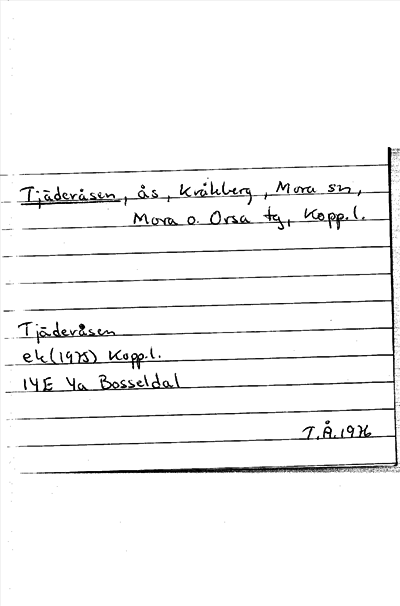 Tjäderåsen, ås, Kråkberg, Mora sn,
Mora o. Orsa tg, Kopp.l.
Tjäderåsen
ek (1975) Kopp.l.
14E 4a Bosseldal
T.Å. 1976